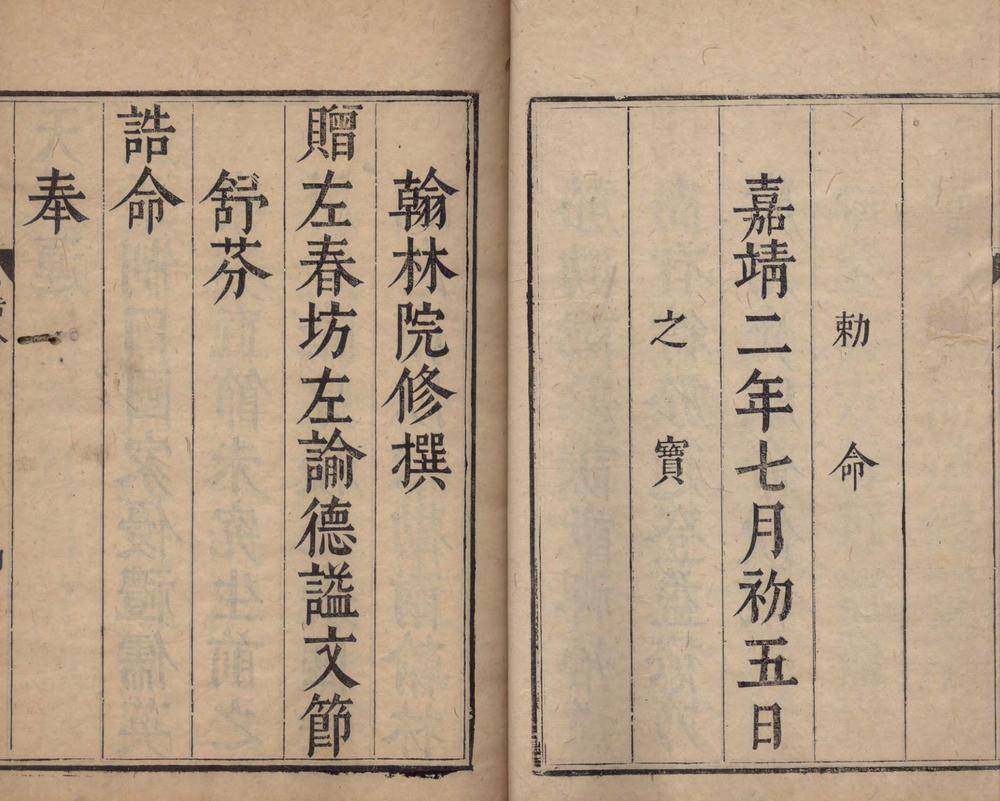 勅命
嘉靖二年七月初五日
之寳
翰林院修撰
贈左春坊左諭德謚文節
舒芬
誥命
奉